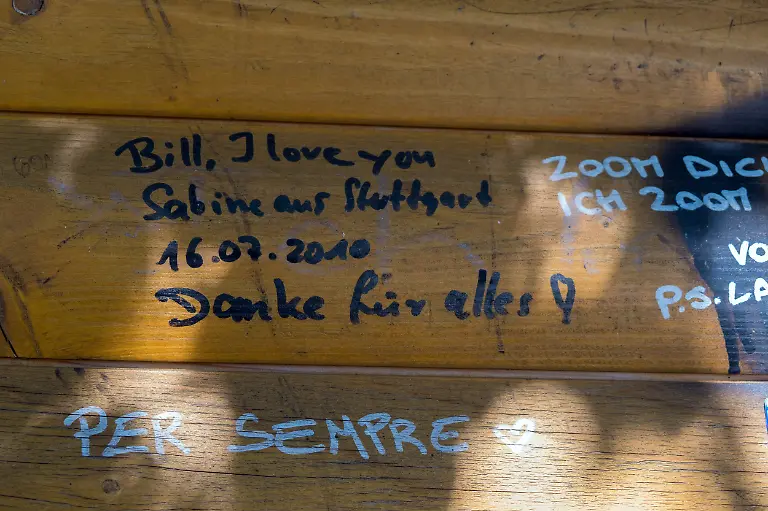 Bill, I love you
Sabine aus Stuttgart
16.07.2010
Danke für alles!
ZOOM DICH
ICH ZOOM
VO
P.S. LA
PER SEMPRE